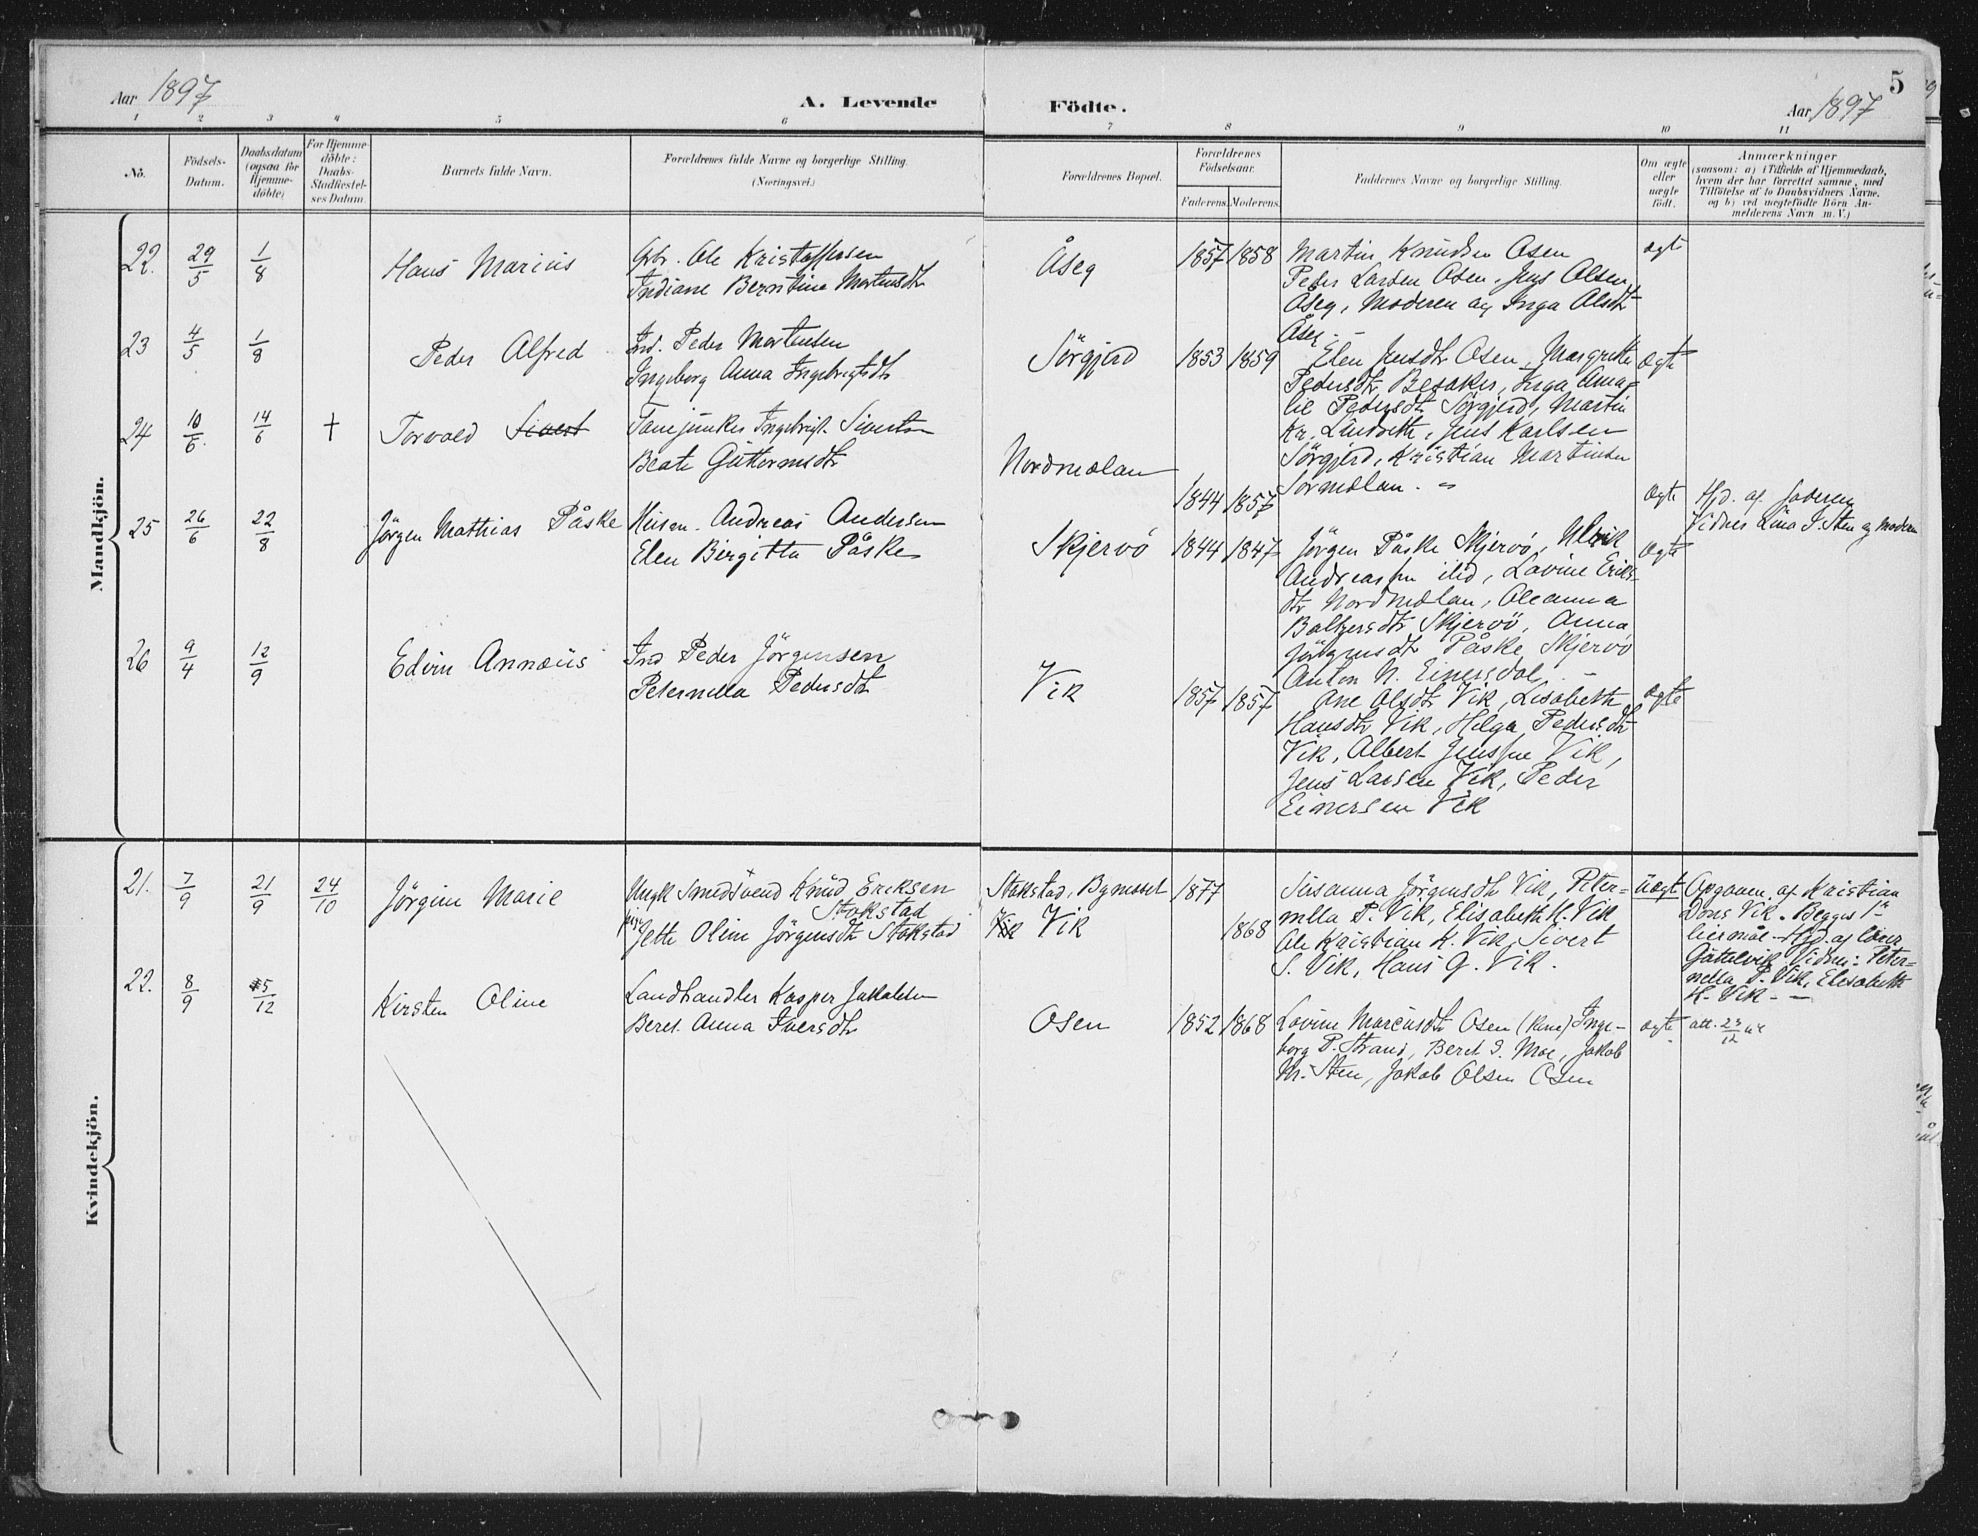 Aar 1897
A. Levende Födte.
Aar 1897
5
1 2 3 4 5 6 7 8 9 10 11
No.
Födsels-
Datum.
Daabsdatum
(ogsaa for
Hjemme-
döbte)
For Hjemme-
döbte:
Daabs-
Stadfæstel-
ses Datum.
Barnets fulde Navn.
Forældrenes fulde Navne og borgerlige Stilling.
(Næringsvei.)
Forældrenes Bopæl.
Forældrenes
Födselsaar.
Faderens. Moderens.
Faddernes Navne og borgerlige Stilling.
Om ægte
eller
uægte
födt.
Anmærkninger
(saasom: a) i Tilfælde af Hjemmedaab,
hvem der har forrettet samme, med
Tilföielse af to Daabsvidners Navne.
og b) ved uægtefödte Börn An-
melderens Navn m. V.)
Mandkjön.
22. 29/5 1/8 Hans Marius
Arb. Ole Kristoffersen
Indiane Berntine Mortensdtr
Åseg 1857 1858
Martin Knudsen Osen
Peder Larsen Osen, Jens Olsen
Åseg, Moderen og Inga Olsdtr
Åseg. -
ægte
23 4/5 1/8 Peder Alfred
Ind. Peder Mortensen
Ingeborg Anna Ingebrigtsdtr
Sörgjerd 1853 1859
Elen Jensdtr Osen, Margrethe
Pedersdtr Besaker, Inga Ama-
lie Pedersdtr Sörgjerd, Martin
Kr. Lindseth, Jens Karlsen
Sörgjerd, Kristian Martinsen
Sörmelan. -
ægte
24 10/6. 14/6 + Torvald Sivert
Ingebrigt Sivertsen
Beate Guttormsdtr
Nordmelan 1844 1857
ægte
Hjd. af faderen
Vidner Lina J. Sten og Moderen
25 26/6 22/8 Jörgen Mathias Påske
Husm. Andreas Andersen
Elen Birgitta Påske
Skjervö 1844 1847
Jörgen Påske Skjervö, Ulrik
Andreassen ibid, Lovine Eriks-
dtr Nordmelan, Oleanna
Baltzersdtr Skjervö, Anna
Jörgensdtr Påske Skjervö
Anton N. Einersdal. -
ægte
26 9/4 12/9 Edvin Annæus
Ind Peder Jörgensen
Peternella Pedersdtr
Vik 1857 1857
Ane Olsdtr Vik, Lisabeth
Hansdtr Vik, Helga Pedersdtr
Vik, Albert Jenssen Vik,
Jens Larsen Vik, Peder
Einersen Vik
ægte
Kvindekjön.
21. 7/9 21/9 24/10 Jörgine Marie
Ungk Smedsvend Knud Eriksen
Stokstad
pige Jette Oline Jörgensdtr Stokstad
Stokstad, Bynesset 1877
Vik Vik 1868
Susanna Jörgensdtr Vik, Peter-
nella P. Vik, Elisabeth H. Vik
Ole Kristian K. Vik, Sivert
S. Vik, Hans G. Vik.
Uægte
Opgaven af Kristian
Dons Vik. Begges 1ste
leiermål - Hjd. af lærer
Vidner: Peter-
nella P. Vik, Elisabeth
H. Vik - -
22. 8/9 5/12 Kirsten Oline
Landhandler Kasper Jakobsen
Beret Anna Iversdtr
Osen 1852 1868
Lovine Marcusdtr Osen Inge-
borg P. Strand, Beret S. Moe, Jakob
M. Sten, Jakob Olsen Osen
ægte
att. 23/12